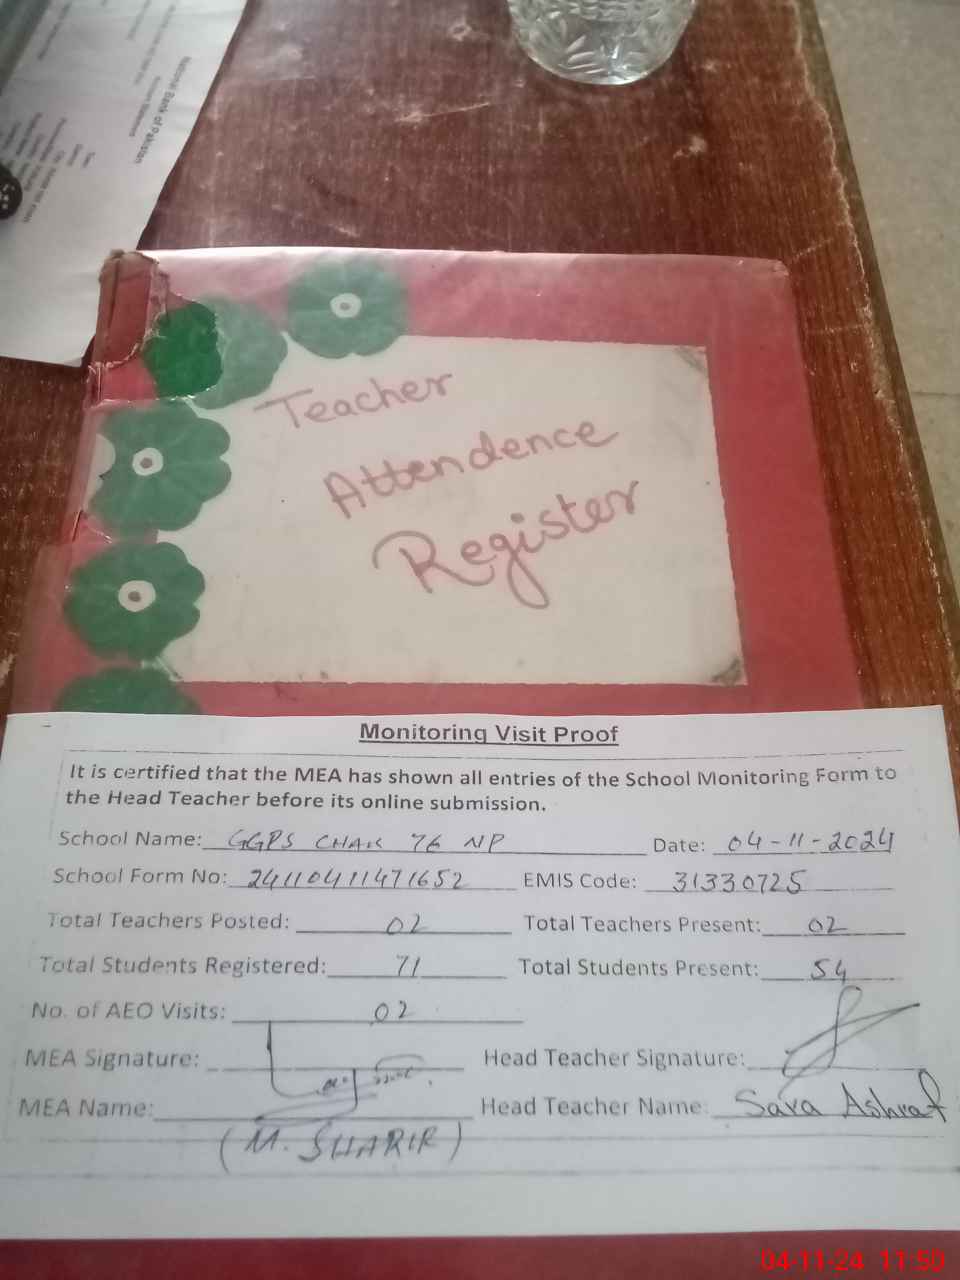 National Bank of Pakistan
Teacher
Attendence
Register
Monitoring Visit Proof
It is certified that the MEA has shown all entries of the School Monitoring Form to
the Head Teacher before its online submission.
School Name: GGPS CHAK 76 NP Date: 04-11-2024
School Form No: 24110411471652 EMIS Code: 31330725
Total Teachers Posted: 02 Total Teachers Present: 02
Total Students Registered: 71 Total Students Present: 54
No. of AEO Visits: 02
MEA Signature: Head Teacher Signature:
MEA Name: Head Teacher Name: Sara Ashraf
(M. SHARIF)
04-11-24 11:50